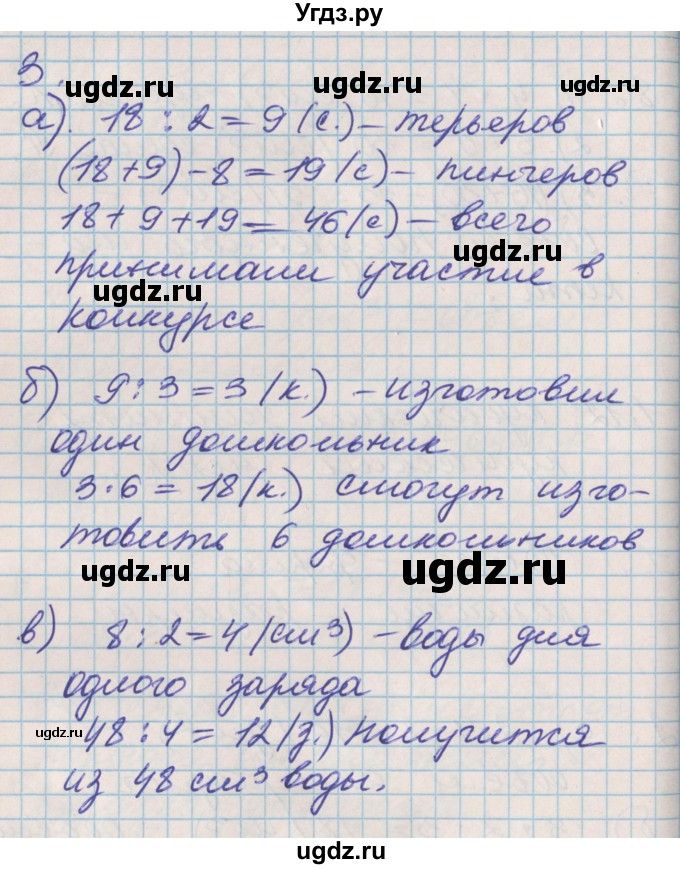 Угдз.ру
3.
ugdz.ru ugdz.ru
а). 18 : 2 = 9 (с.) – терьеров
(18 + 9) – 8 = 19 (с) – пинчеров
18 + 9 + 19 = 46 (с) – всего
ugdz.ru
принимали участие в
ugdz.ru
конкурсе
б) 9 : 3 = 3 (к.) – изготовил
один дошкольник
3 · 6 = 18 (к.) смогут изго-
товить 6 дошкольников
ugdz.ru ugdz.ru
в) 8 : 2 = 4 (см³) – воды для
одного заряда
ugdz.ru 48 : 4 = 12 (з.) получится
из 48 см³ воды.
ugdz.ru